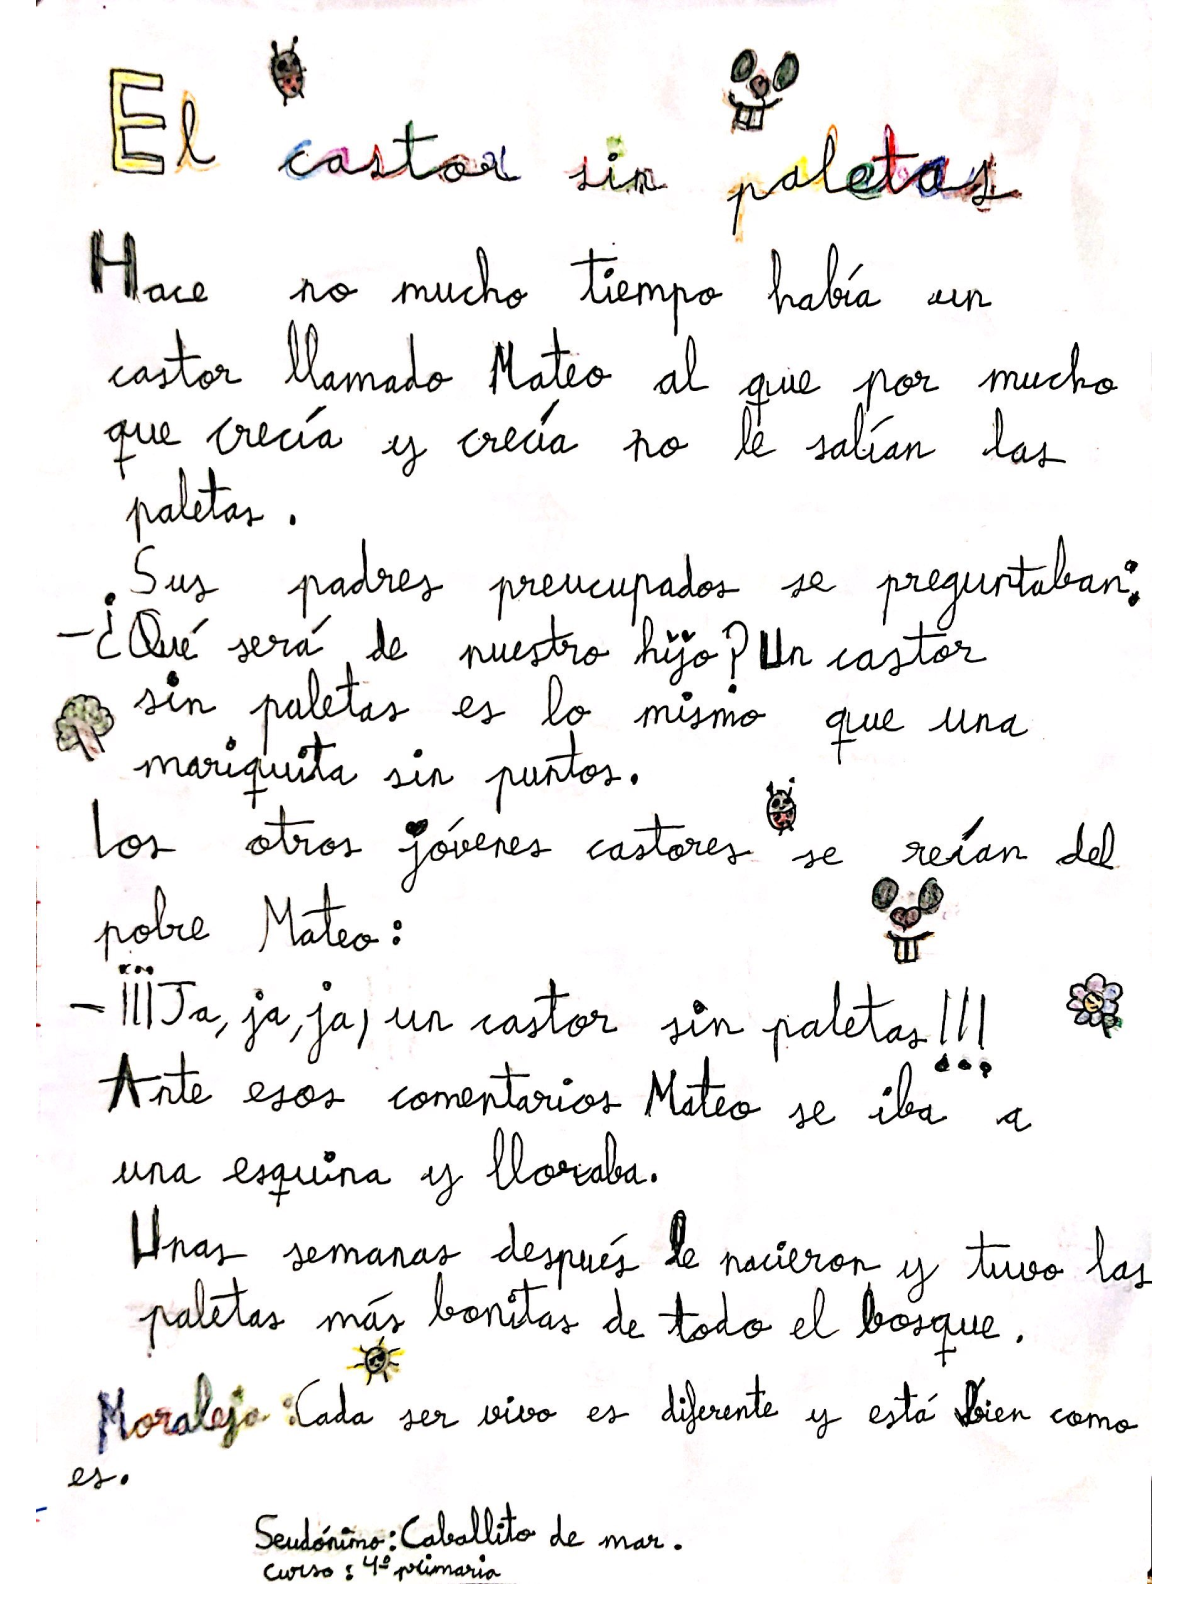 El castor sin paletas
Hace no mucho tiempo había un
castor llamado Mateo al que por mucho
que crecía y crecía no le salían las
paletas.
Sus padres preucupados se preguntaban:
-¿Qué será de nuestro hijo? Un castor
sin paletas es lo mismo que una
mariquita sin puntos.
Los otros jóvenes castores se reían del
pobre Mateo:
-¡¡¡Ja, ja, ja, un castor sin paletas!!!
Ante esos comentarios Mateo se iba a
una esquina y lloraba.
Unas semanas después le nacieron y tuvo las
paletas más bonitas de todo el bosque.
Moraleja: Cada ser vivo es diferente y está bien como
es.
Seudónimo: Caballito de mar.
curso: 4º primaria